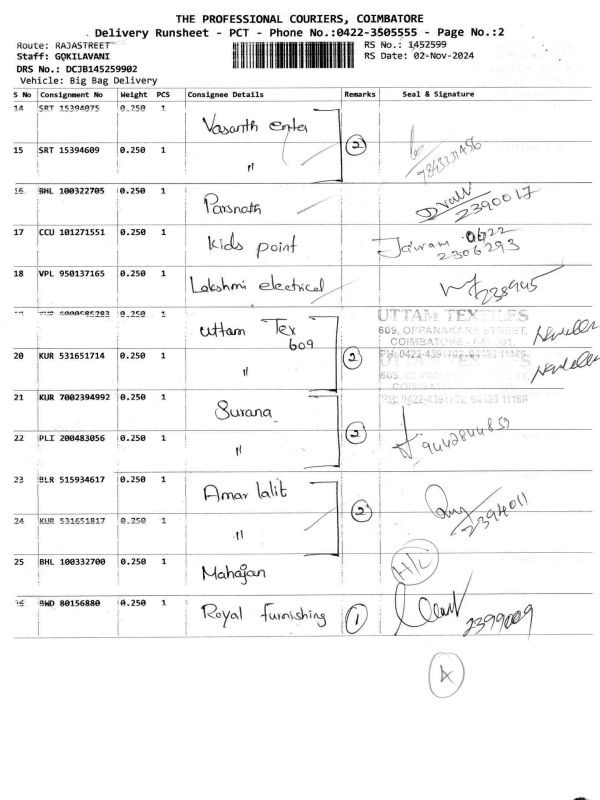 THE PROFESSIONAL COURIERS, COIMBATORE
Delivery Runsheet - PCT - Phone No.:0422-3505555 - Page No.:2
Route: RAJASTREET RS No.: 1452599
Staff: GOKILAVANI RS Date: 02-Nov-2024
DRS No.: DCJB145259902
Vehicle: Big Bag Delivery
S No Consignment No Weight PCS Consignee Details Remarks Seal & Signature
14 SRT 15394075 0.250 1 Vasanth enter
2
15 SRT 15394609 0.250 1 " 7845331496
16 BHL 100322705 0.250 1 Parsnath 2390017
17 CCU 101271551 0.250 1 Kids point Jairam 0422
2306293
18 VPL 950137165 0.250 1 Lakshmi electrical 238945
0.250 1 Uttam Tex UTTAM TEXTILES
609 609, OPPANAKARA STREET,
COIMBATORE - 641 001.
20 KUR 531651714 0.250 1 " 2 PH: 0422-4391702, 94420 11166
21 KUR 7002394992 0.250 1 Surana PH: 0422-4391702, 94420 11166
2
22 PLI 200483056 0.250 1 " 9442844859
23 BLR 515934617 0.250 1 Amar lalit
2 2394011
24 KUR 531651817 0.250 1 "
25 BHL 100332700 0.250 1 Mahajan H/L
BWD 80156880 0.250 1 Royal furnishing 1 2399009